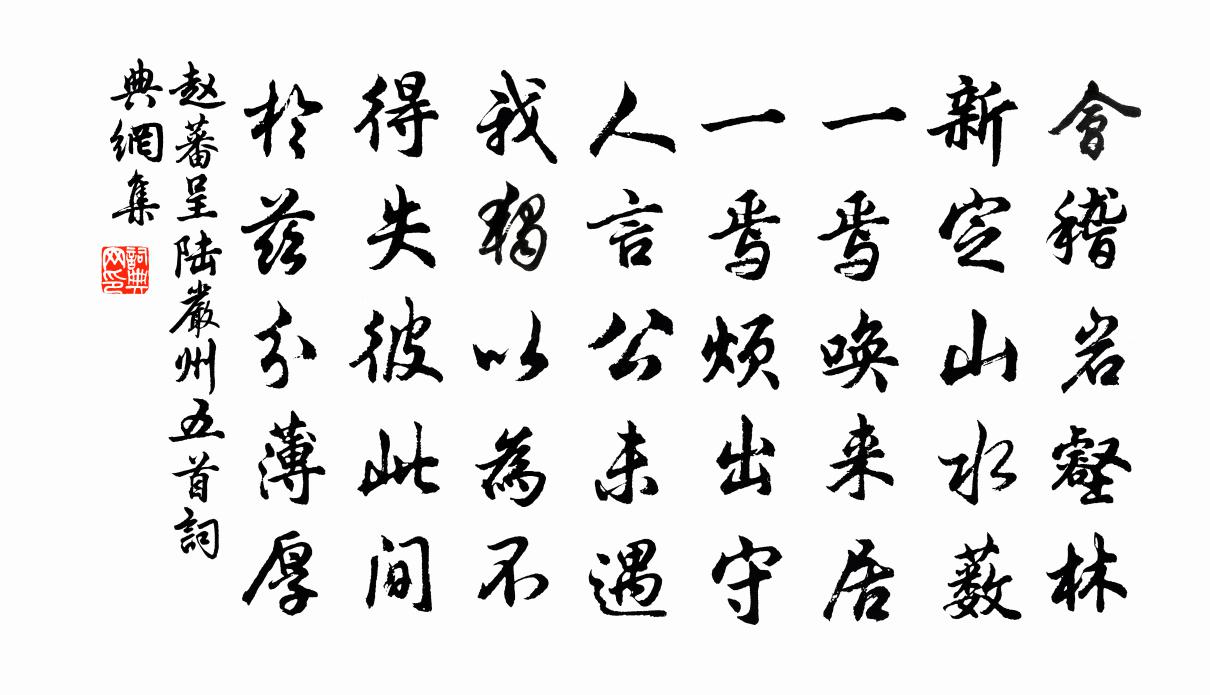 會稽岩壑林
新定山水薮
一焉唤来居
一焉烦出守
人言公未遇
我獨以為不
得失彼此间
於兹分薄厚
赵蕃呈陆嚴州五首詞
典網集
詞典
网印